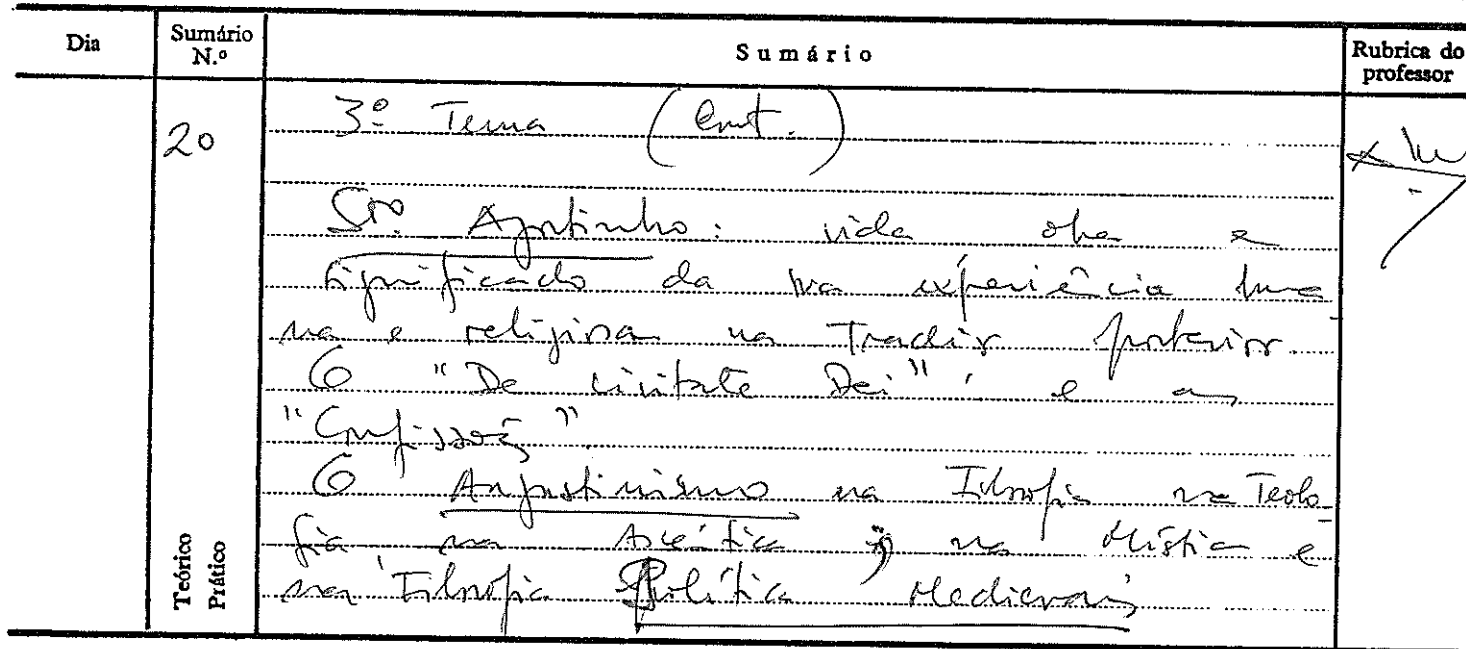 Dia Sumário N.º Sumário Rubrica do professor
20
3º Tema (Cont.)
Stº. Agostinho: vida obra e
significado da sua experiência huma
na e religiosa na Tradição posterior.
O "De civitate Dei" e as
"Confissões".
O Augustinismo na Filosofia na Teolo_
gia na Ascética, na Mística e
na Filosofia Política Medievais
Teórico
Prático